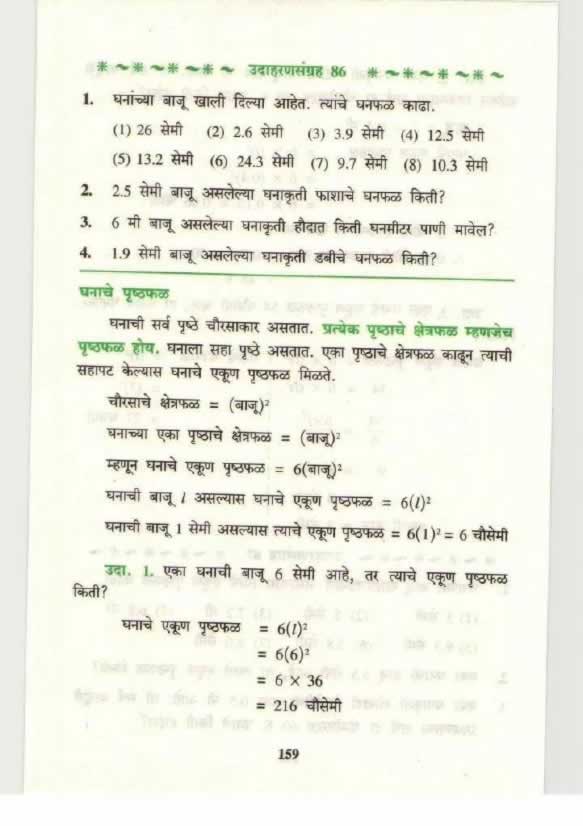 उदाहरणसंग्रह 86
1. घनांच्या बाजू खाली दिल्या आहेत. त्यांचे घनफळ काढा.
(1) 26 सेमी (2) 2.6 सेमी (3) 3.9 सेमी (4) 12.5 सेमी
(5) 13.2 सेमी (6) 24.3 सेमी (7) 9.7 सेमी (8) 10.3 सेमी
2. 2.5 सेमी बाजू असलेल्या घनाकृती फाशाचे घनफळ किती?
3. 6 मी बाजू असलेल्या घनाकृती हौदात किती घनमीटर पाणी मावेल?
4. 1.9 सेमी बाजू असलेल्या घनाकृती डबीचे घनफळ किती?
घनाचे पृष्ठफळ
घनाची सर्व पृष्ठे चौरसाकार असतात. प्रत्येक पृष्ठाचे क्षेत्रफळ म्हणजेच
पृष्ठफळ होय. घनाला सहा पृष्ठे असतात. एका पृष्ठाचे क्षेत्रफळ काढून त्याची
सहापट केल्यास घनाचे एकूण पृष्ठफळ मिळते.
चौरसाचे क्षेत्रफळ = (बाजू)²
घनाच्या एका पृष्ठाचे क्षेत्रफळ = (बाजू)²
म्हणून घनाचे एकूण पृष्ठफळ = 6(बाजू)²
घनाची बाजू l असल्यास घनाचे एकूण पृष्ठफळ = 6(l)²
घनाची बाजू 1 सेमी असल्यास त्याचे एकूण पृष्ठफळ = 6(1)² = 6 चौसेमी
उदा. 1. एका घनाची बाजू 6 सेमी आहे, तर त्याचे एकूण पृष्ठफळ
किती?
घनाचे एकूण पृष्ठफळ = 6(l)²
= 6(6)²
= 6 × 36
= 216 चौसेमी
159